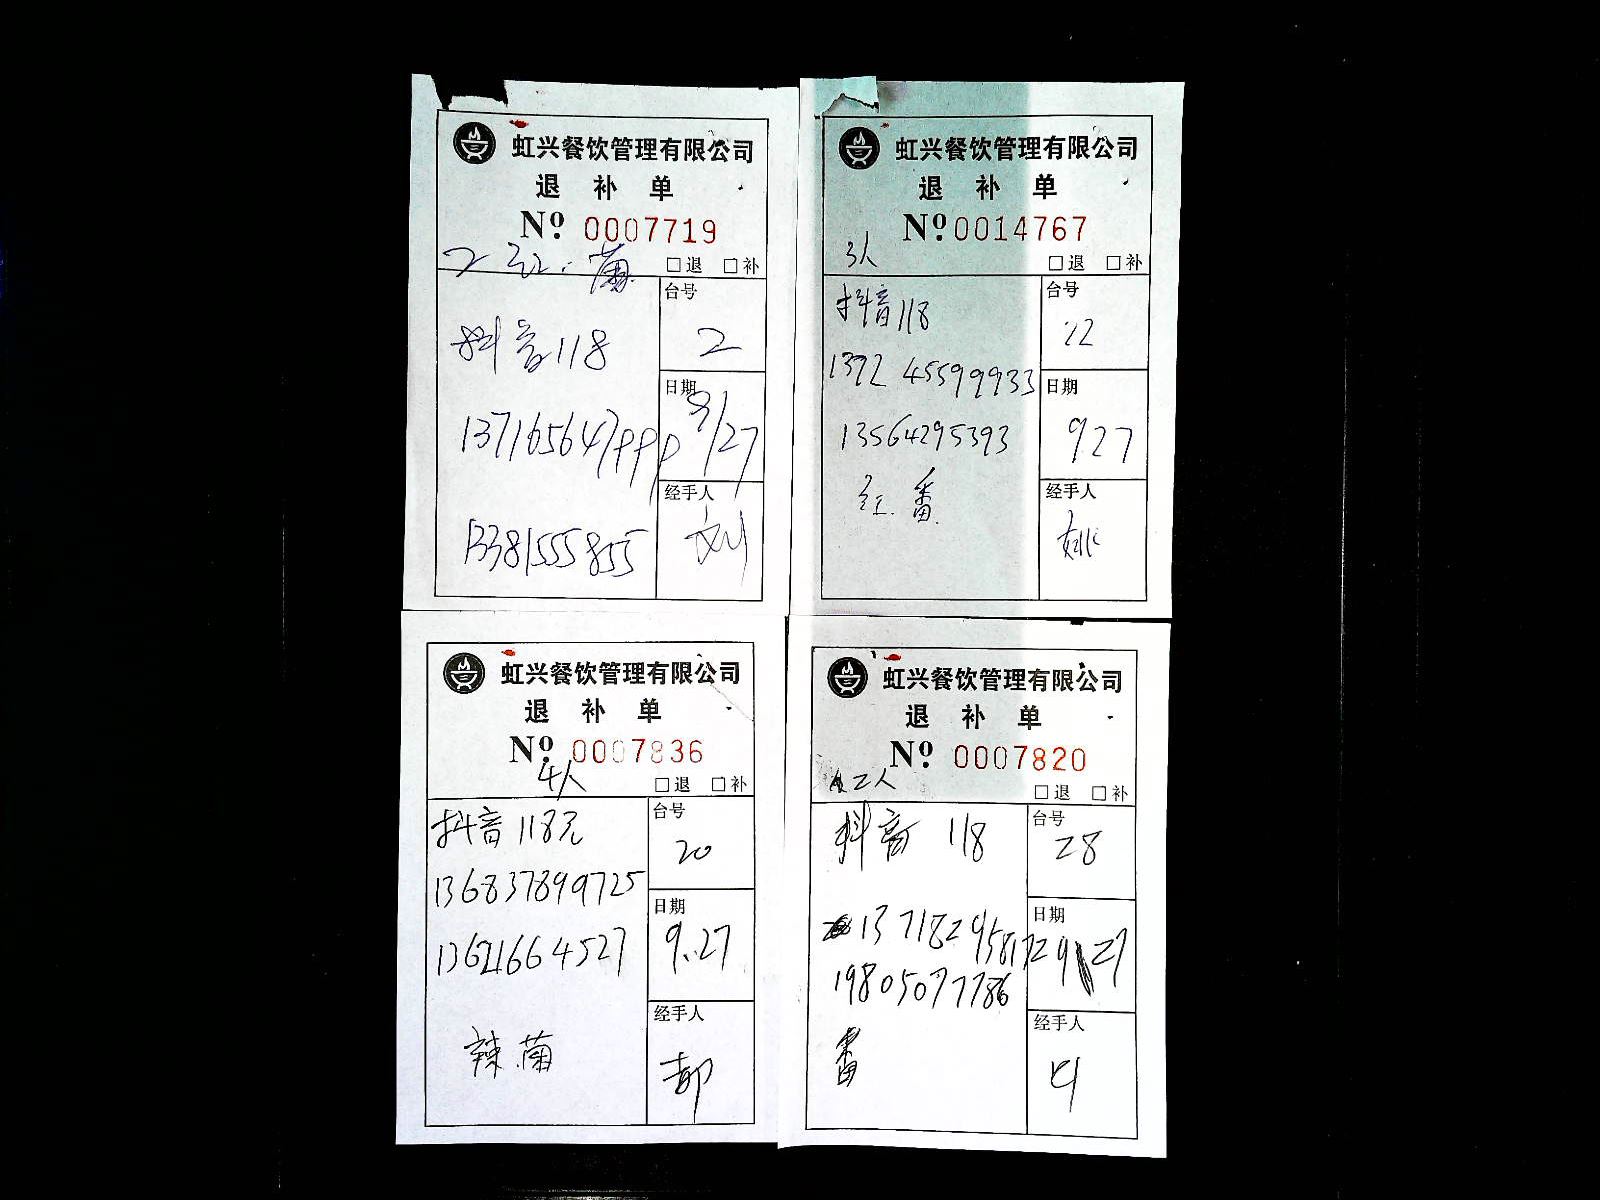 虹兴餐饮管理有限公司
退 补 单
Nº 0007719
2 红、菌
□退 □补
台号
抖音118
2
日期
9/27
137165647999
经手人
13381555855
刘
虹兴餐饮管理有限公司
退 补 单
Nº 0014767
3人
□退 □补
台号
抖音118
22
1392 45599933
日期
13564295393
927
红.番
经手人
姚
虹兴餐饮管理有限公司
退 补 单
Nº 0007836
4人
□退 □补
台号
抖音118元
20
136837899725
日期
13621664527
9.27
经手人
辣.菌
郝
虹兴餐饮管理有限公司
退 补 单
Nº 0007820
2人
□退 □补
台号
抖音 118
28
日期
137182958172
9 27
19805077786
经手人
番